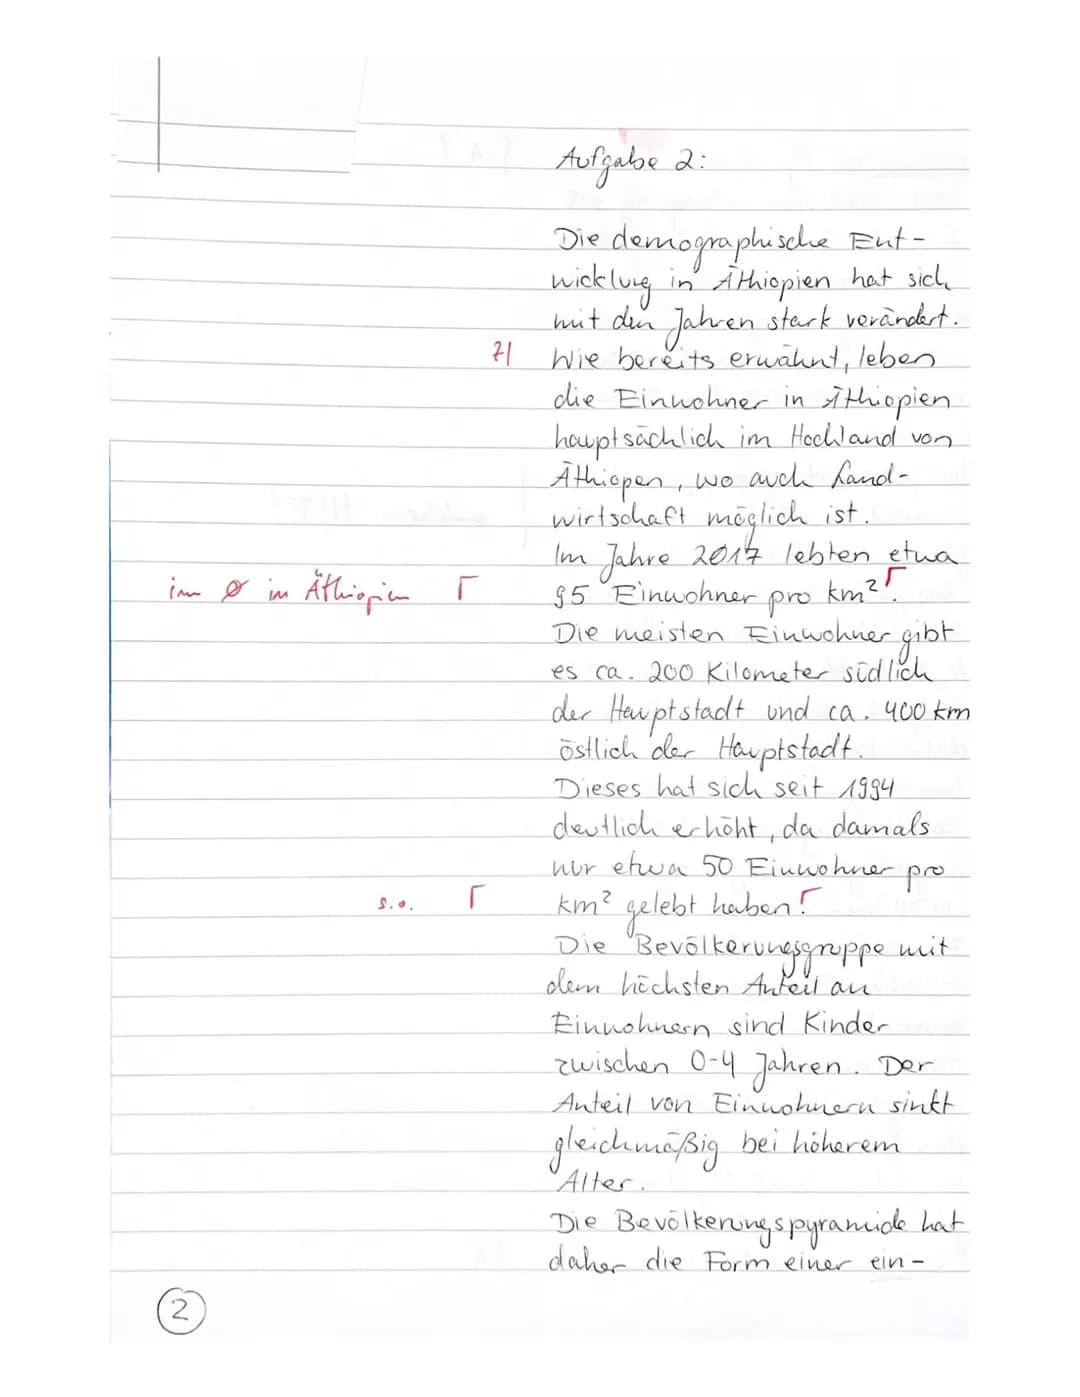 Aufgabe 2:
Die demographische Ent-
wicklung in Äthiopien hat sich
mit den Jahren stark verändert.
71 Wie bereits erwähnt, leben
die Einwohner in Äthiopien
hauptsächlich im Hochland von
Äthiopen, wo auch Land-
wirtschaft möglich ist.
Im Jahre 2017 lebten etwa
im Ø in Äthiopien Γ 95 Einwohner pro km²Γ.
Die meisten Einwohner gibt
es ca. 200 Kilometer südlich
der Hauptstadt und ca. 400 km
östlich der Hauptstadt.
Dieses hat sich seit 1994
deutlich erhöht, da damals
nur etwa 50 Einwohner pro
s.o. Γ km² gelebt haben.Γ
Die Bevölkerungsgruppe mit
dem höchsten Anteil an
Einwohnern sind Kinder
zwischen 0-4 Jahren. Der
Anteil von Einwohnern sinkt
gleichmäßig bei höherem
Alter.
Die Bevölkerungspyramide hat
daher die Form einer ein-
2